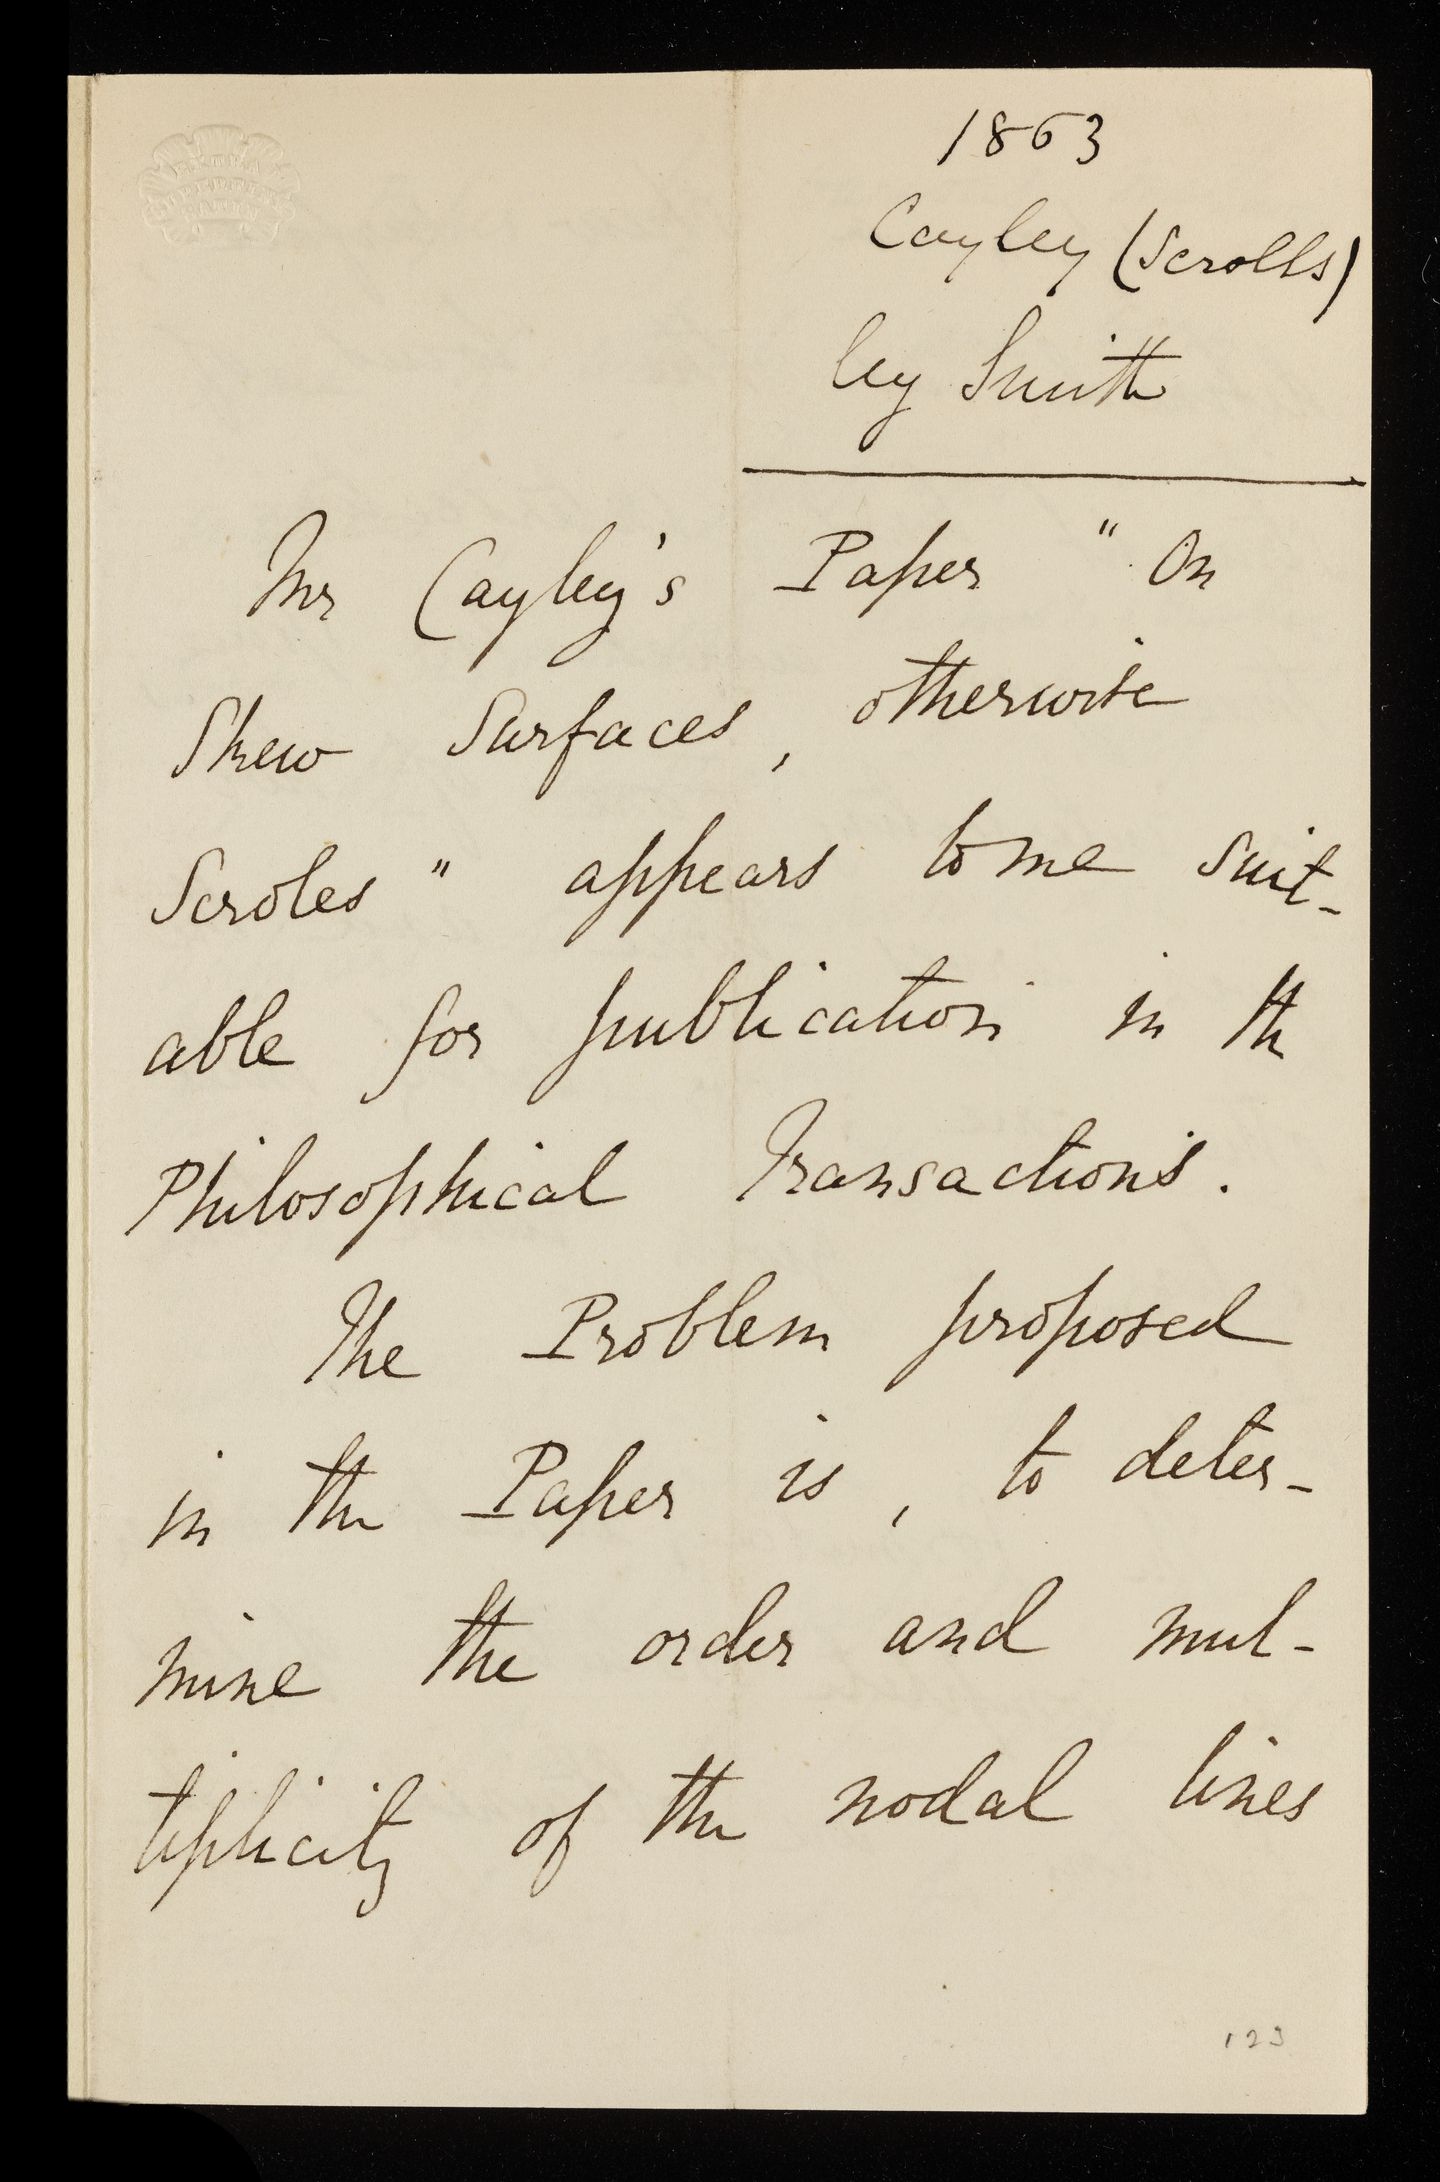 1863
Cayley (Scrolls)
by Smith
Mr Cayley's Paper "On
Skew Surfaces, otherwise
Scroles" appears to me suit-
able for publication in the
Philosophical Transactions.
The Problem proposed
in the Paper is, to deter-
mine the order and mul-
tiplicity of the nodal lines
123